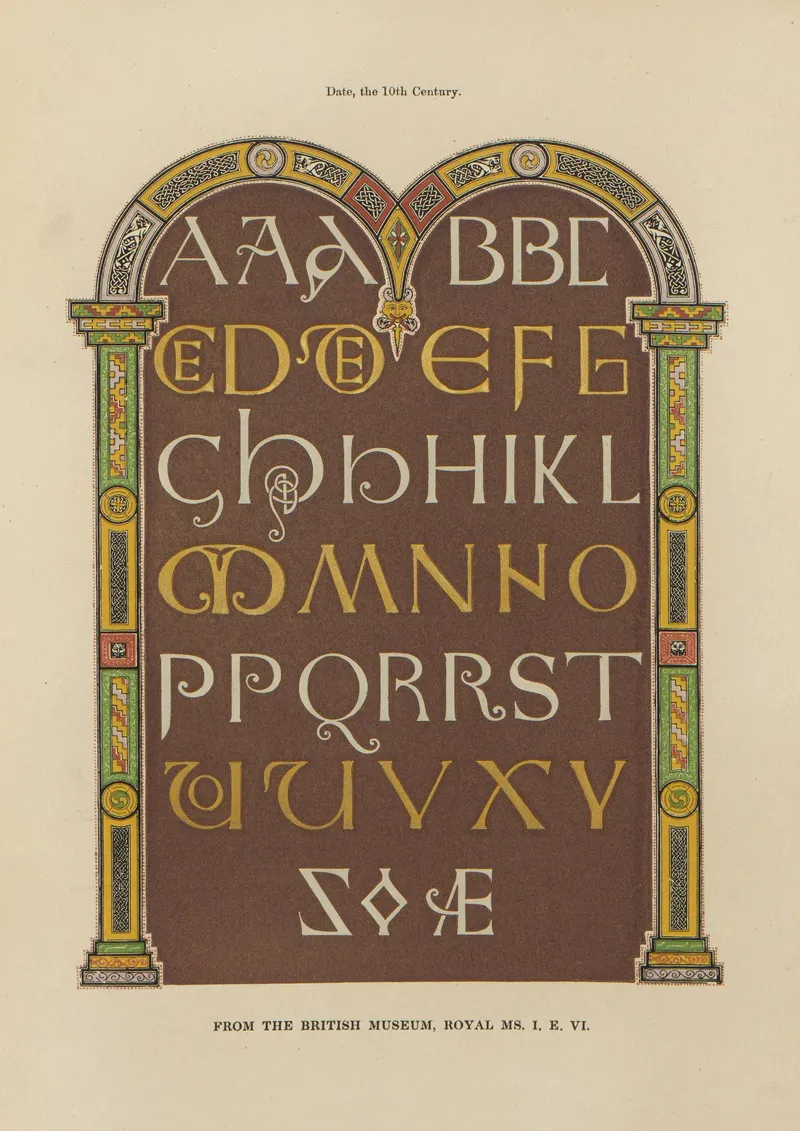 Date, the 10th Century.
AAA BBC
CEDDE EFG
GhhHIKL
MMNNO
PPQRRST
UOUVXY
ZOÆ
FROM THE BRITISH MUSEUM, ROYAL MS. I. E. VI.